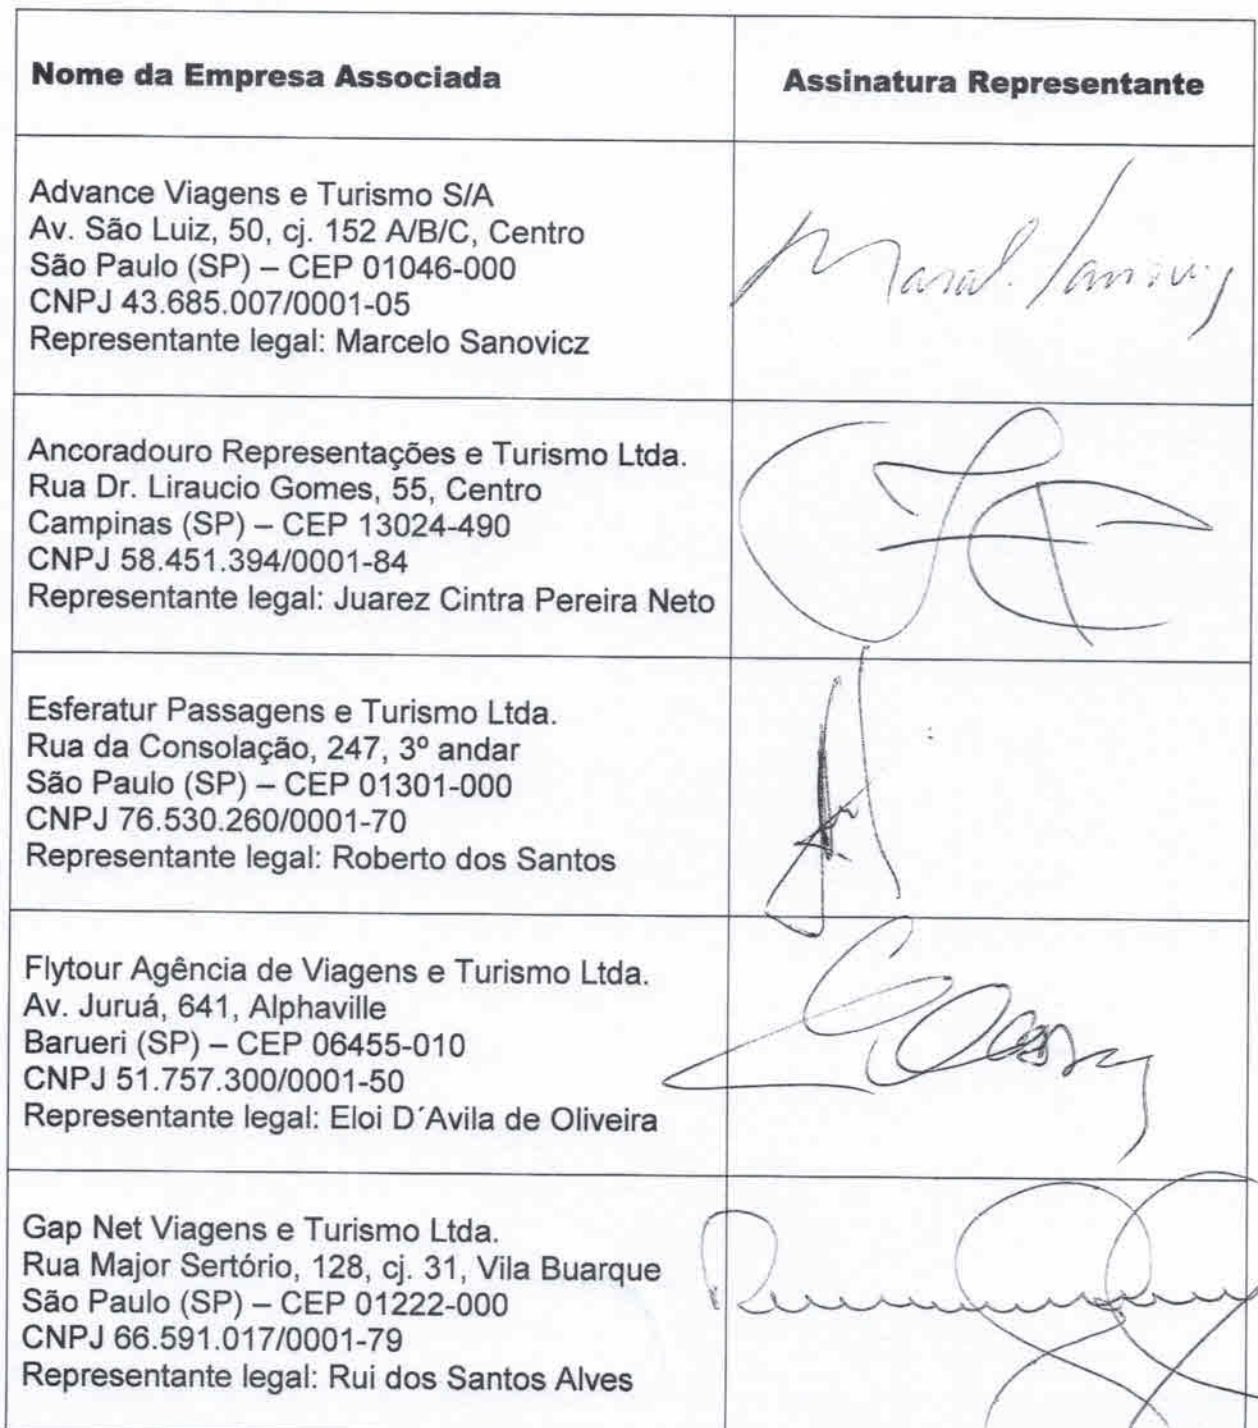 Nome da Empresa Associada
Assinatura Representante
Advance Viagens e Turismo S/A
Av. São Luiz, 50, cj. 152 A/B/C, Centro
São Paulo (SP) – CEP 01046-000
CNPJ 43.685.007/0001-05
Representante legal: Marcelo Sanovicz
Ancoradouro Representações e Turismo Ltda.
Rua Dr. Liraucio Gomes, 55, Centro
Campinas (SP) – CEP 13024-490
CNPJ 58.451.394/0001-84
Representante legal: Juarez Cintra Pereira Neto
Esferatur Passagens e Turismo Ltda.
Rua da Consolação, 247, 3º andar
São Paulo (SP) – CEP 01301-000
CNPJ 76.530.260/0001-70
Representante legal: Roberto dos Santos
Flytour Agência de Viagens e Turismo Ltda.
Av. Juruá, 641, Alphaville
Barueri (SP) – CEP 06455-010
CNPJ 51.757.300/0001-50
Representante legal: Eloi D´Avila de Oliveira
Gap Net Viagens e Turismo Ltda.
Rua Major Sertório, 128, cj. 31, Vila Buarque
São Paulo (SP) – CEP 01222-000
CNPJ 66.591.017/0001-79
Representante legal: Rui dos Santos Alves